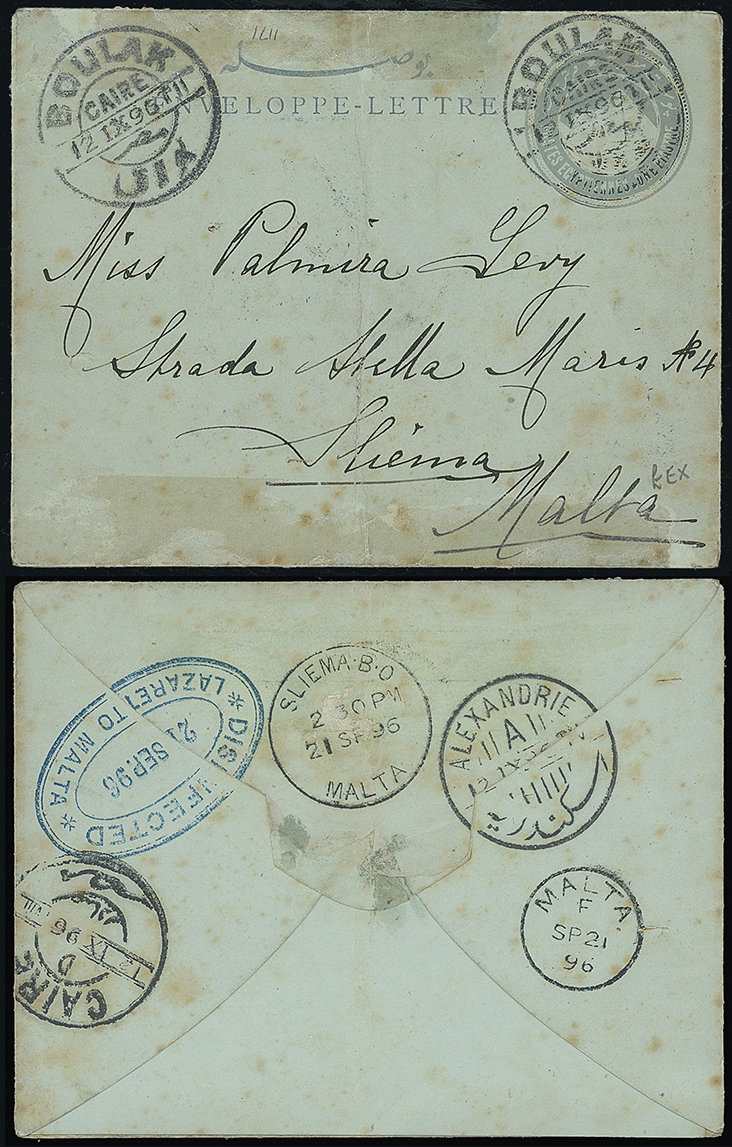 1711
بوصله
ENVELOPPE-LETTRE
BOULAK
CAIRE
12 IX 96 T II
BOULAK
CAIRE
IX 96
POSTES EGYPTIENNES ONE PIASTRE
Miss Palmira Levy
Strada Stella Maris № 4
Sliema
Malta
EX
DISINFECTED
21 SEP. 96
* LAZARETTO MALTA *
SLIEMA·B·O
2 30 PM
21 SP 96
MALTA
ALEXANDRIE
A
12 IX 96
اسكندرية
CAIRE
D
12 IX 96
MALTA
F
SP 21
96